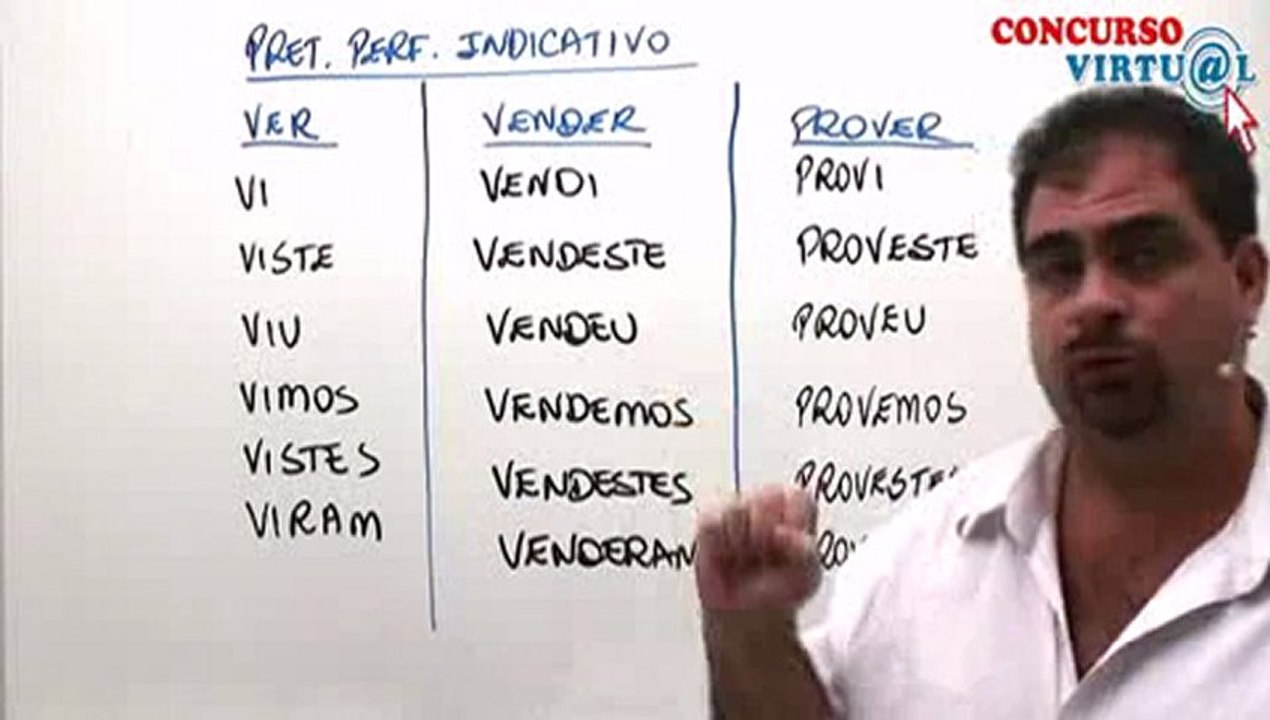 PRET. PERF. INDICATIVO
CONCURSO
VIRTU@L
VER
VI
VISTE
VIU
VIMOS
VISTES
VIRAM
VENDER
VENDI
VENDESTE
VENDEU
VENDEMOS
VENDESTES
VENDERAM
PROVER
PROVI
PROVESTE
PROVEU
PROVEMOS
PROVESTES